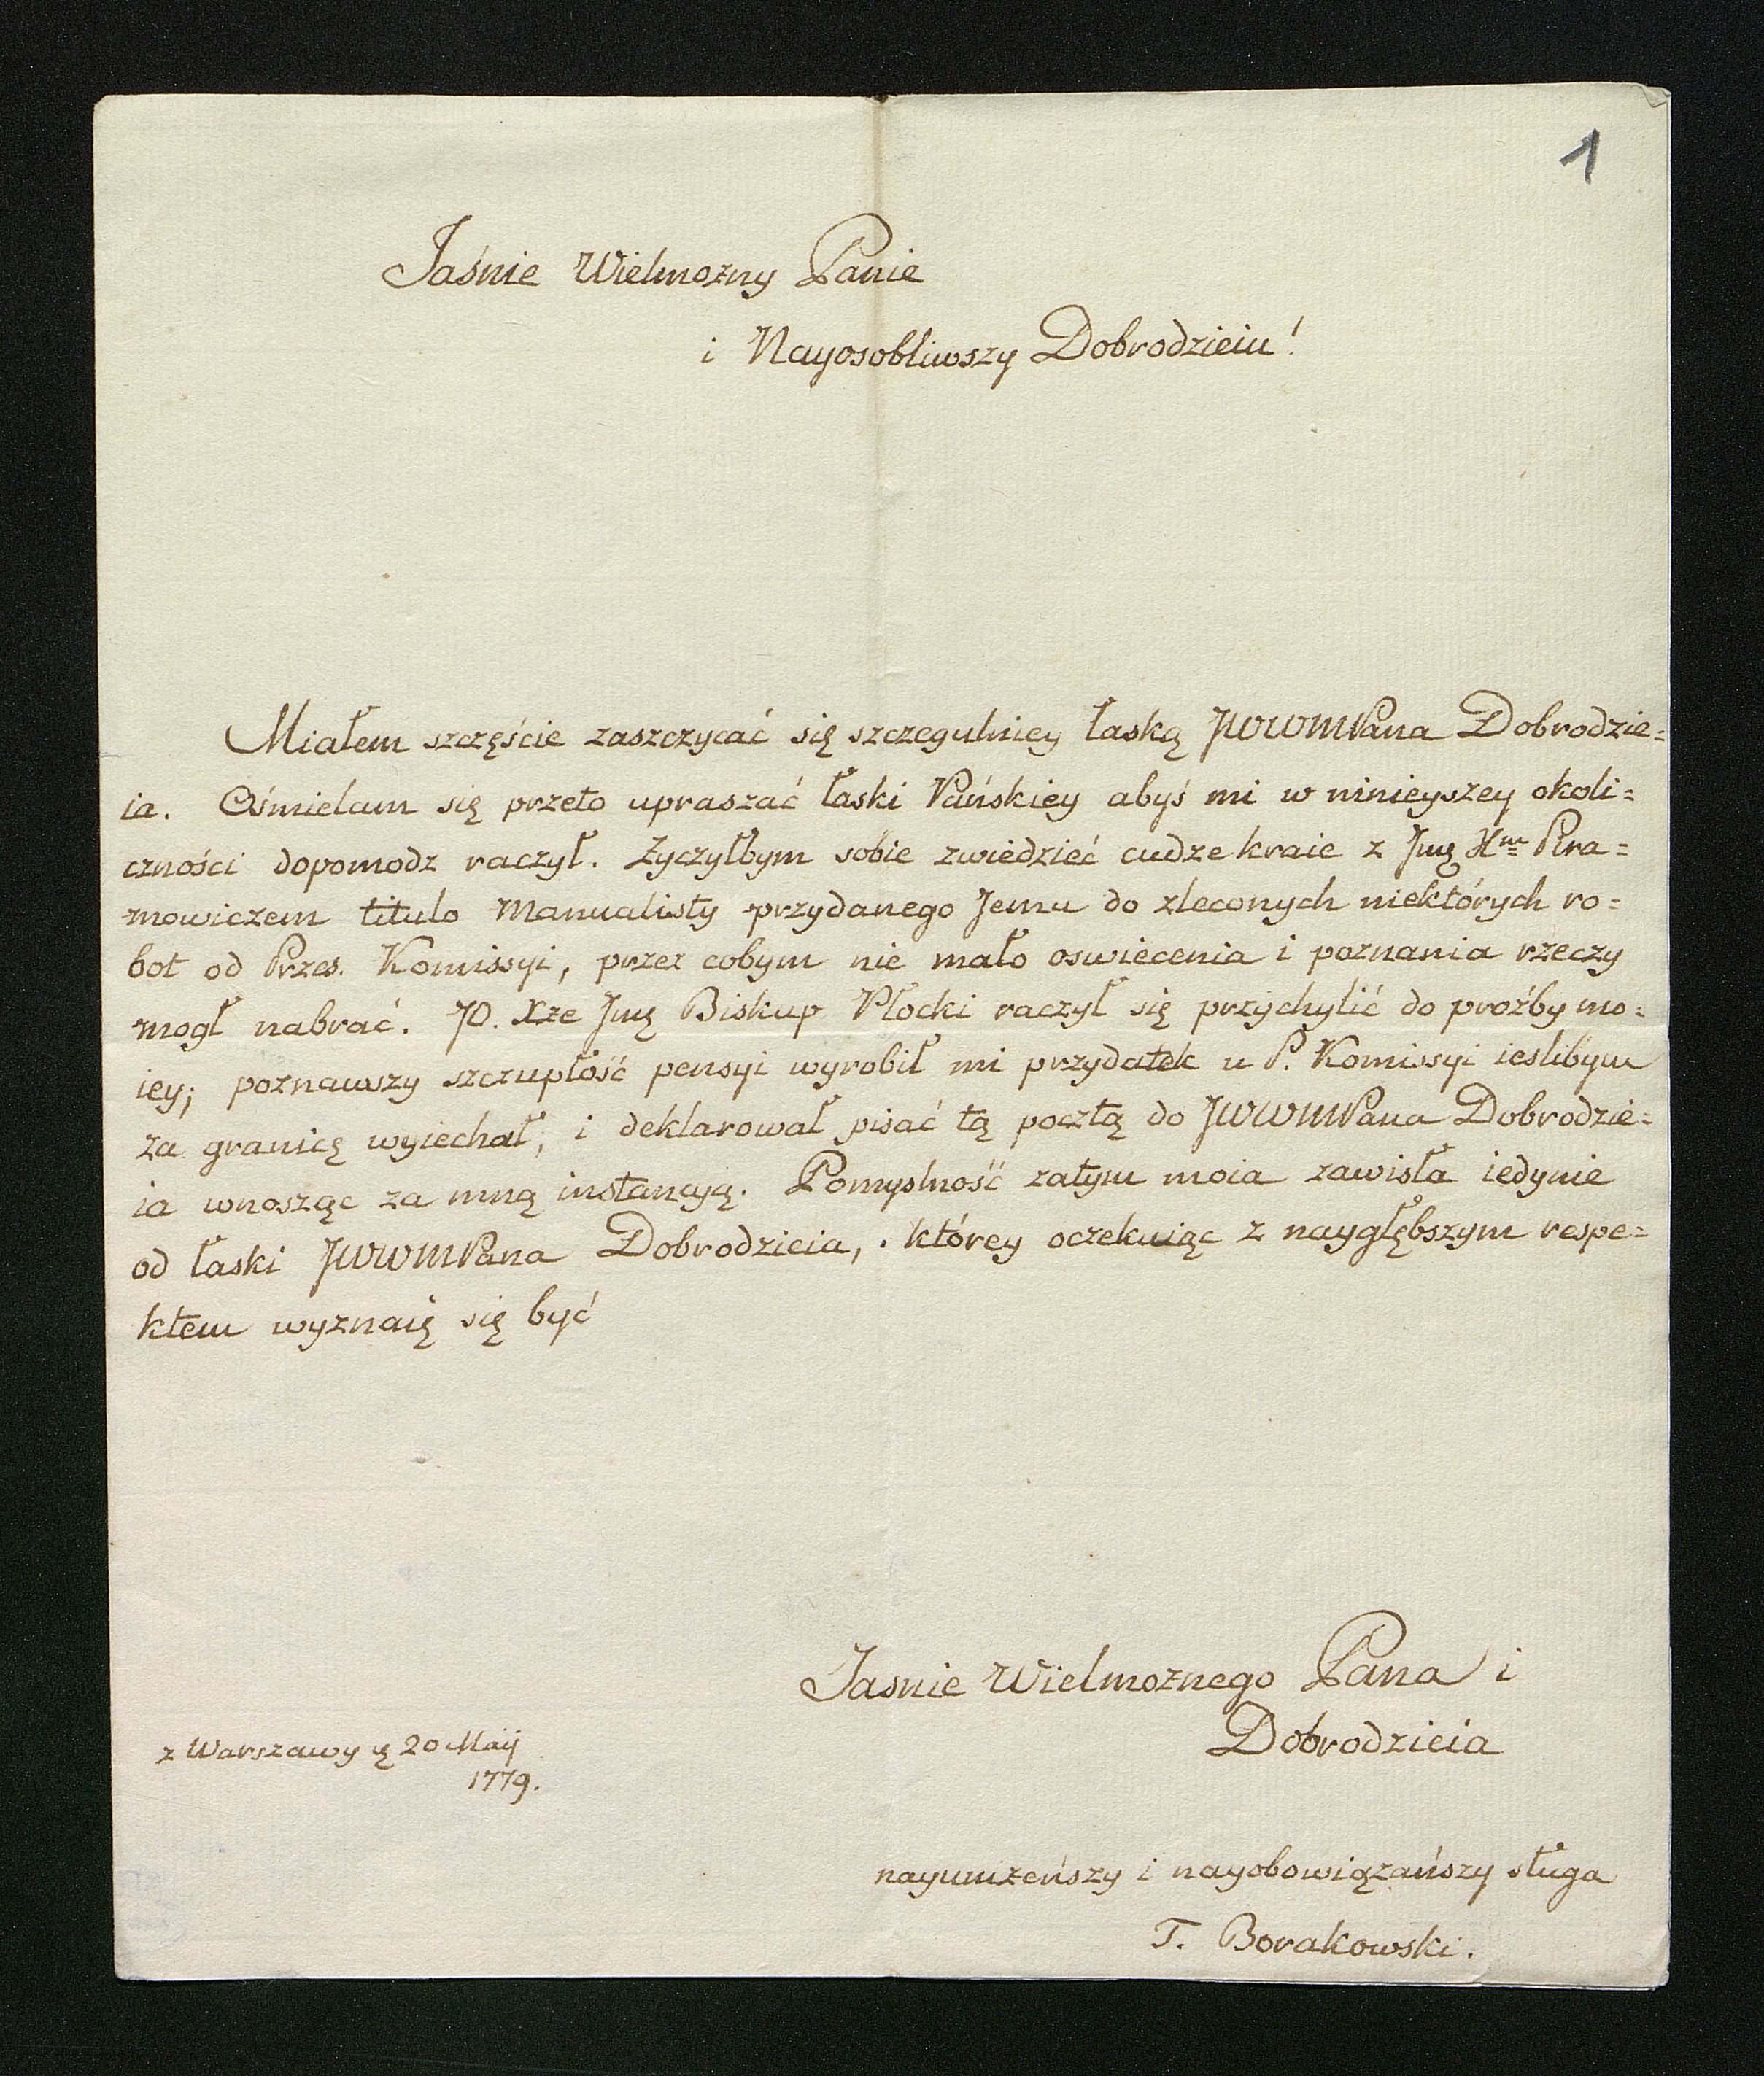 1
Jaśnie Wielmozny Panie
i Nayosobliwszy Dobrodzieiu!
Miałem szczęście zaszczycać się szczegulniey łaską JWWMPana Dobrodzie=
ia. Ośmielam się przeto upraszać łaski Pańskiey abyś mi w ninieyszey okoli=
czności dopomodz raczył. Zyczyłbym sobie zwiedzieć cudze kraie z Jmę Xm Pira=
mowiczem titulo Manualisty przydanego Jemu do zleconych niektórych ro=
bot od Przes. Komissyi, przez cobym nie mało oswiecenia i poznania rzeczy
mogł nabrać. JO. Xże Jmę Biskup Płocki raczył się przychylić do proźby mo=
iey; poznawszy szczupłość pensyi wyrobił mi przydatek u P. Komissyi ieslibym
za granicę wyiechał, i deklarował pisać tą pocztą do JWWMPana Dobrodzie=
ia wnosząc za mną instancyą. Pomyslność zatym moia zawisła iedynie
od łaski JWWMPana Dobrodzieia, którey oczekuiąc z naygłębszym respe=
ktem wyznaię się być
Jasnie Wielmoznego Pana i
Dobrodzieia
z Warszawy ę 20 Maij
1779.
nayunizeńszy i nayobowiązańszy sługa
T. Borakowski.